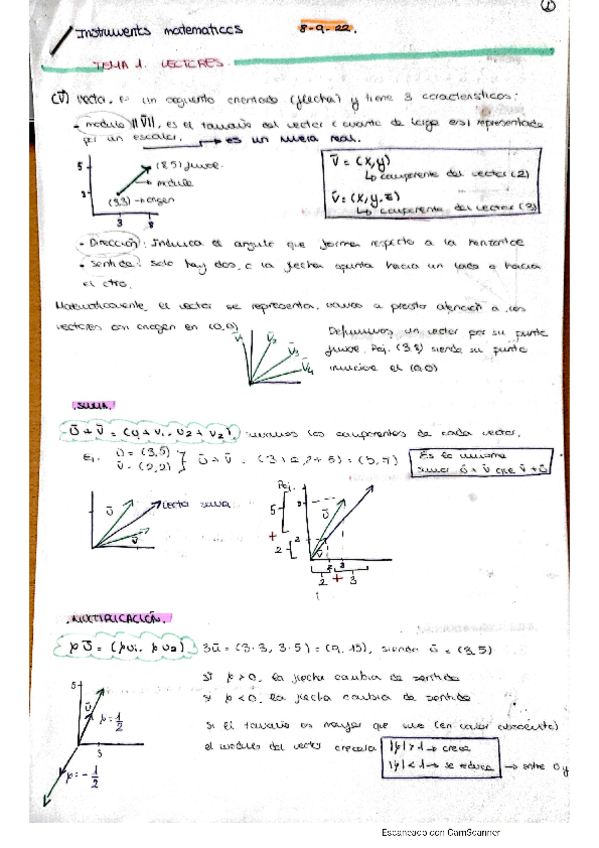 ①
Instruments matematics 8-9-22.
TEMA 1. VECTORES.
(v̄) Vector, es un segmento orientado (flecha) y tiene 3 características:
- modulo ||v̄||, es el tamaño del vector (cuanto de larga es) representada
por un escalar. → es un numero real.
5 (8,5) final.
→ modulo
(3,3) → origen
3 8
v̄ = (x,y)
↳ componente del vector (2)
v̄ = (x,y,z)
↳ componente del vector (3)
- Dirección: Indica el angulo que forma respecto a la horizontal
- Sentido: Solo hay dos, o la flecha apunta hacia un lado o hacia
el otro.
Matematicamente, el vector se representa, vamos a prestar atención a los
vectores con origen en (0,0)
v̄1 v̄2 v̄3 v̄4
Definimos un vector por su punto
final. Pej. (3,8) siendo su punto
el (0,0)
.SUMA.
ū + v̄ = (u1+v1, u2+v2), sumamos los componentes de cada vector.
Ej. ū = (3,5)
v̄ = (2,2) } ū + v̄ = (3+2, 2+5) = (5,7)
Es lo mismo
sumar ū + v̄ que v̄ + ū
ū → vector suma
v̄
Pej.
5
+
2
ū
v̄
2 3
2 + 3
.MULTIPLICACIÓN.
p ū = (pu1, pu2) 3ū = (3·3, 3·5) = (9, 15), siendo ū = (3,5)
Si p > 0, la flecha cambia de sentido
Si p < 0, la flecha cambia de sentido
Si el tamaño es mayor que uno (en valor absoluto)
el modulo del vector crecerá
|p| > 1 → crece
|p| < 1 → se reduce → entre 0 y
5
ū
p = 1/2
3
p = - 1/2
Escaneado con CamScanner